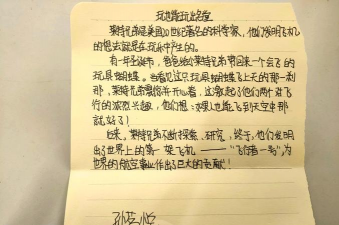 玩也能玩出名堂
莱特兄弟是美国20世纪著名的科学家，他们发明飞机
的想法就是在玩乐中产生的。
有一年圣诞节，爸爸给莱特兄弟带回来一个会飞的
玩具蝴蝶。当看见这只玩具蝴蝶飞上天的那一刹
那，莱特兄弟惊讶并开心着，这激起了他们两个对飞
行的浓烈兴趣，他们想：如果人也能飞到天空中那
就好了！
后来，莱特兄弟不断探索、研究，终于，他们发明
出了世界上的第一架飞机——“飞行者一号”，为
世界的航空事业作出了巨大的贡献！